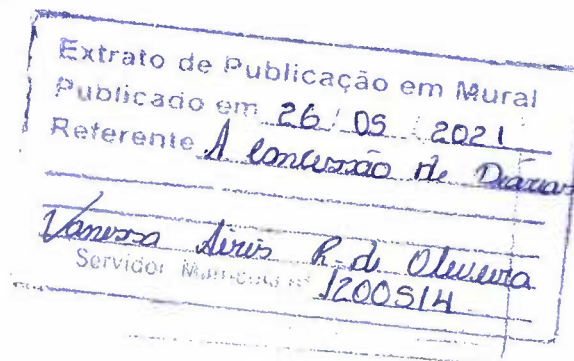 Extrato de Publicação em Mural
Publicado em 26/05/2021
Referente A concessão de Diarias
Vanessa Aires R. de Oliveira
Servidor Matricula nº 1200514